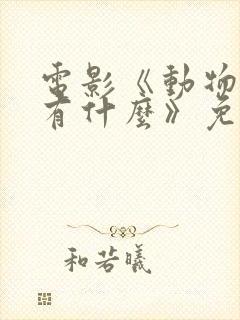 電影《動物
有什麼》免
和若曦